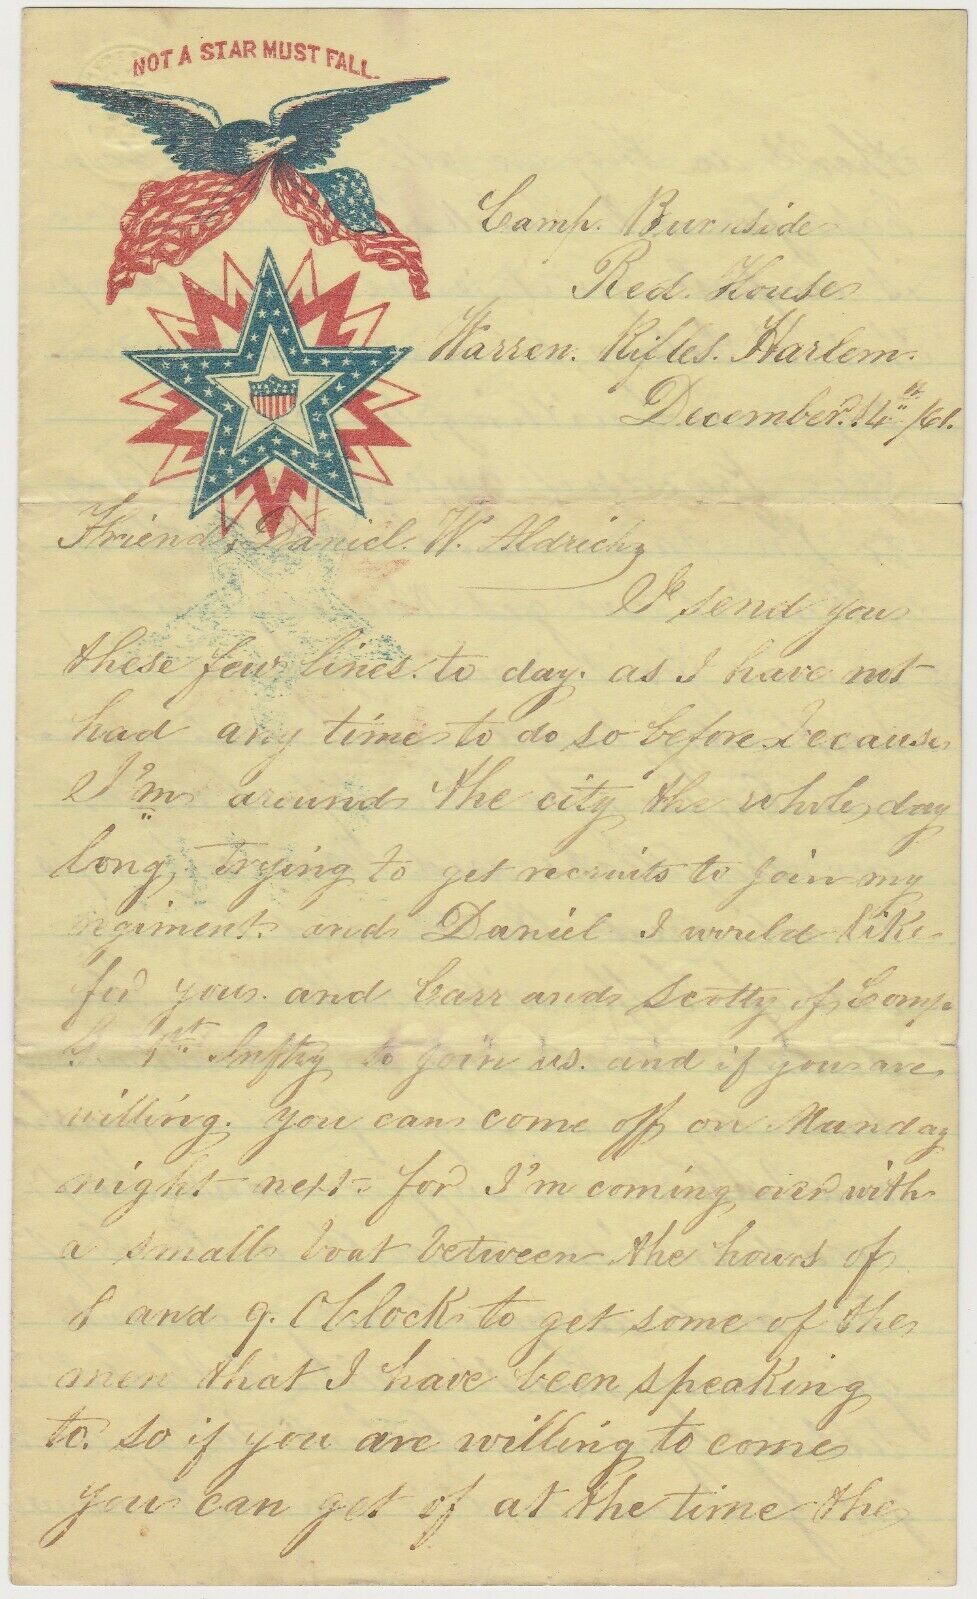 NOT A STAR MUST FALL.
Camp. Burnside
Red. House
Warren. Rifles. Harlem.
December. 14th /61.
Friend, Daniel. W. Aldrich,
I send you
these few lines. to day. as I have not
had any time to do so before. because
I'm around the city the whole day
long, trying to get recruits to join my
regiment. and Daniel I would like
for you. and Carr and Scotty of Comp.
G. 1st Inftry to join us. and if you are
willing. you can come off on Munday
night next. for I'm coming over with
a small boat between the hours of
8 and 9. O'Clock to get some of the
men that I have been speaking
to. so if you are willing to come
you can get of at the time the